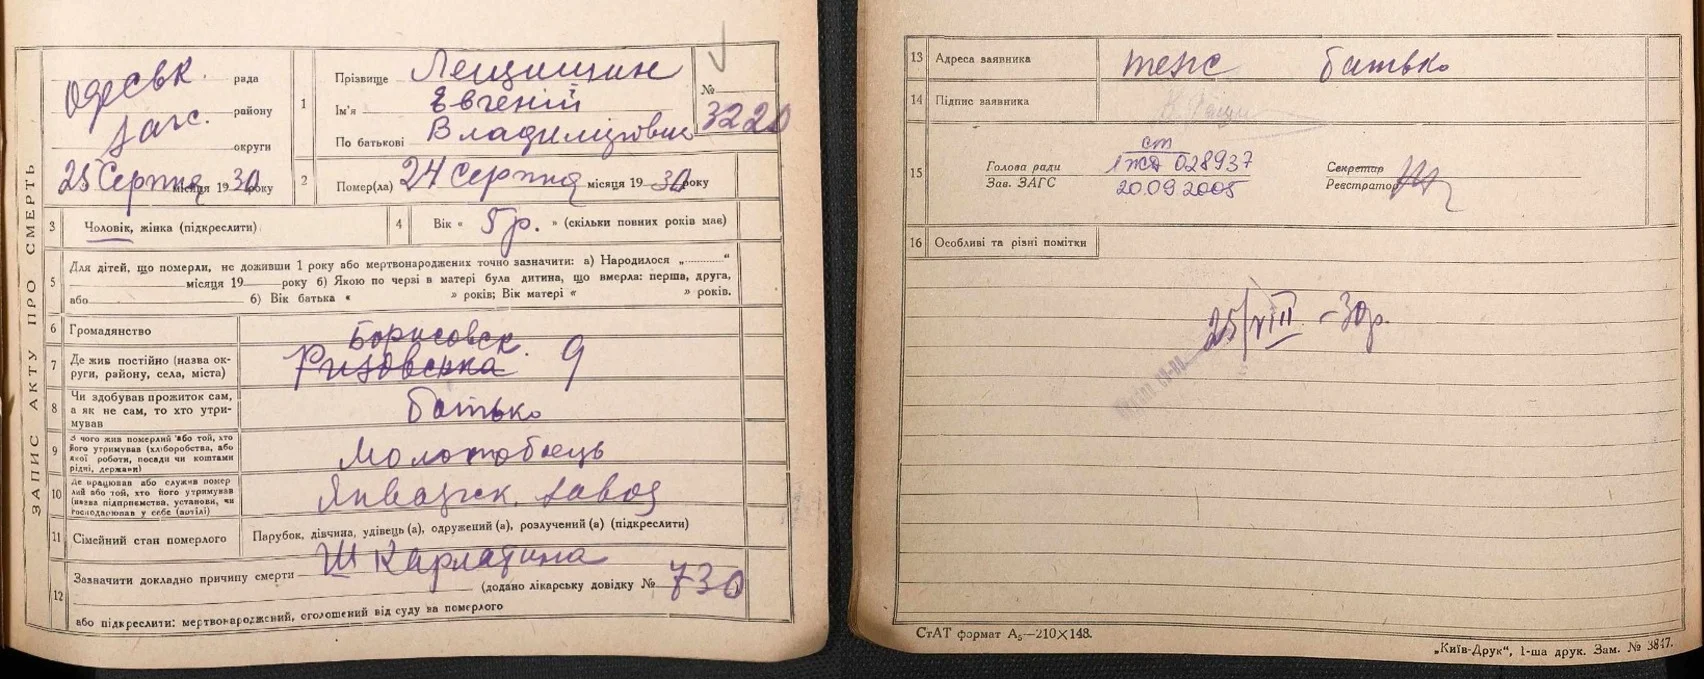 ЗАПИС АКТУ ПРО СМЕРТЬ
Одеськ. рада
Загс. району
округи
25 Серпня місяця 1930 року
1
Прізвище Лещишин
Ім'я Евгеній
По батькові Владимірівич
№ 3220
2
Помер(ла) 24 Серпня місяця 1930 року
3 Чоловік, жінка (підкреслити)
4 Вік « 5 р. » (скільки повних років має)
5 Для дітей, що померли, не доживши 1 року або мертвонароджених точно зазначити: а) Народилося „ “
місяця 19 року б) Якою по черзі в матері була дитина, що вмерла: перша, друга,
або б) Вік батька « » років; Вік матері « » років.
6 Громадянство
7 Де жив постійно (назва ок-
руги, району, села, міста)
Борисовск. 9
8 Чи здобував прожиток сам,
а як не сам, то хто утри-
мував
батько
9 З чого жив померлий або той, хто
його утримував (хліборобства, або
якої роботи, посади чи коштами
рідні, держави)
Молотобоець
10 Де працював або служив помер
лий або той, хто його утримував
(назва підприємства, установи, чи
господарював у себе (артілі)
Январск. завод
11 Сімейний стан померлого
Парубок, дівчина, удівець (а), одружений (а), розлучений (а) (підкреслити)
12 Зазначити докладно причину смерти Ш Карлатина
(додано лікарську довідку № 730
або підкреслити: мертвонароджений, оголошений від суду за померлого
13 Адреса заявника теж батько
14 Підпис заявника
15 Голова ради
Зав. ЗАГС
ст
1ЖД 028937
20.09 2005
Секретар
Реєстратор
16 Особливі та різні помітки
25/VIII – 30 р.
СтАТ формат А₅—210×148.
„Київ-Друк“, 1-ша друк. Зам. № 3847.